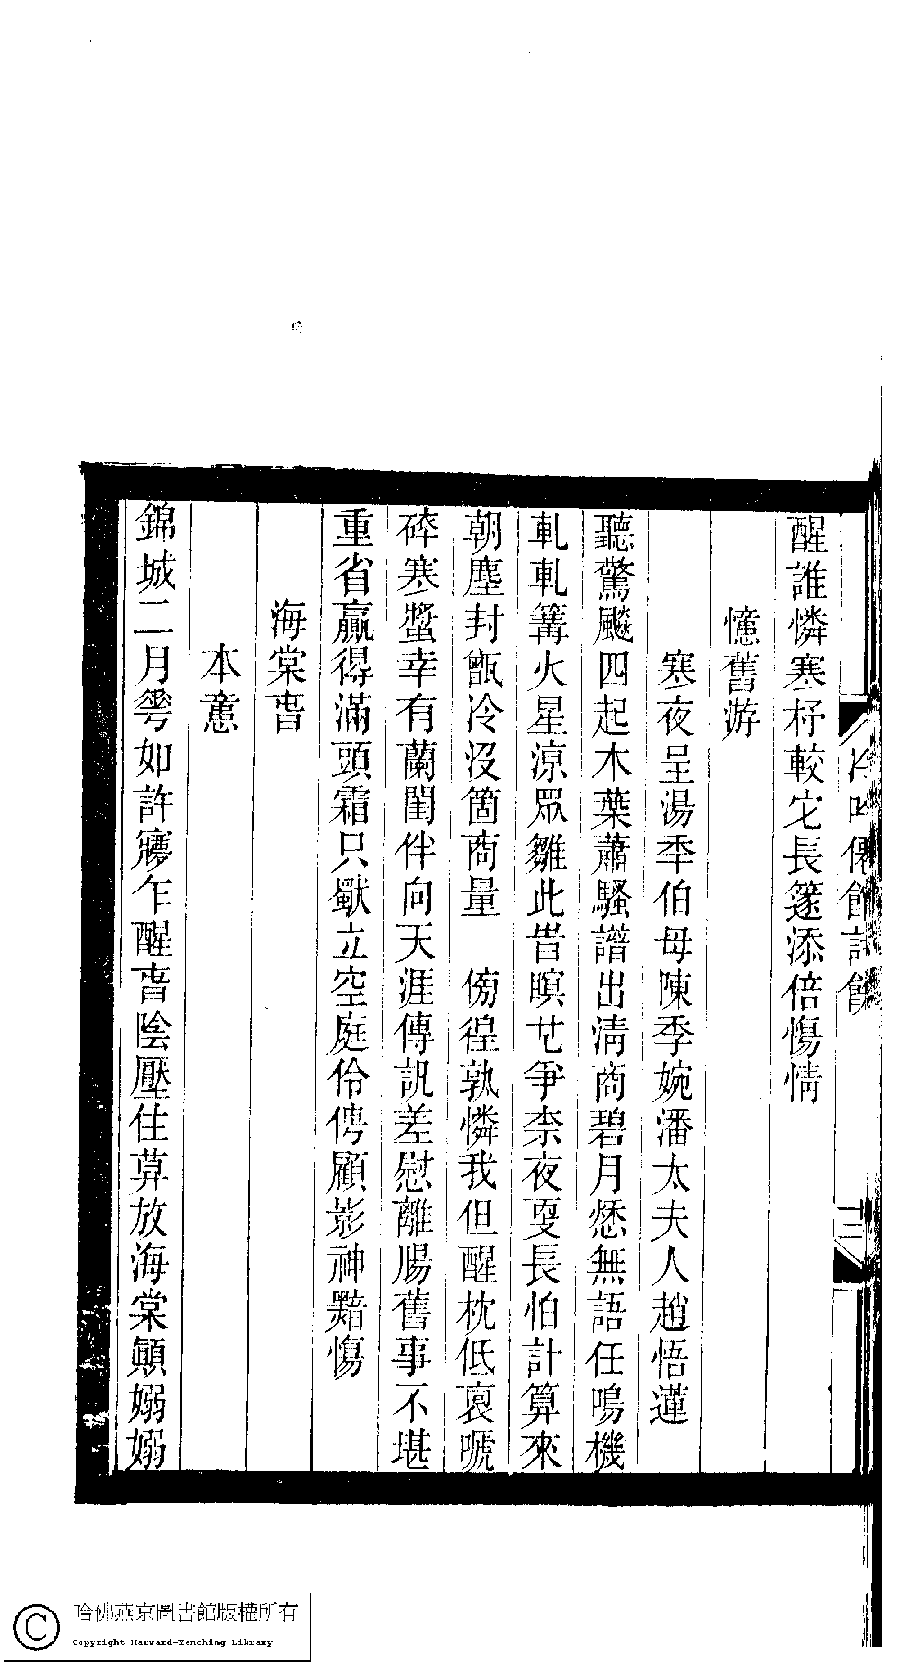 醒誰憐寒杼較它長篴添倍傷情
憶舊游
寒夜呈湯季伯母陳季婉潘太夫人趙悟蓮
聽驚颷四起木葉蕭騷譜出淸商碧月愁無語任鳴機
軋軋篝火星涼眾雛此昔瞑也爭柰夜耎長怕計算來
朝塵封甑冷沒箇商量　徬徨孰憐我但醒枕低哀嗁
碎寒螿幸有蘭閨伴向天涯傳訊差慰離腸舊事不堪
重省贏得滿頭霜只獸立空庭伶俜顧影神黯傷
海棠萅
本意
錦城二月雩如許寱乍醒萅陰壓住莫放海棠顚嫋嫋
冷吟僊館詩餘
三
哈佛燕京圖書館版權所有
Copyright Harvard-Yenching Library